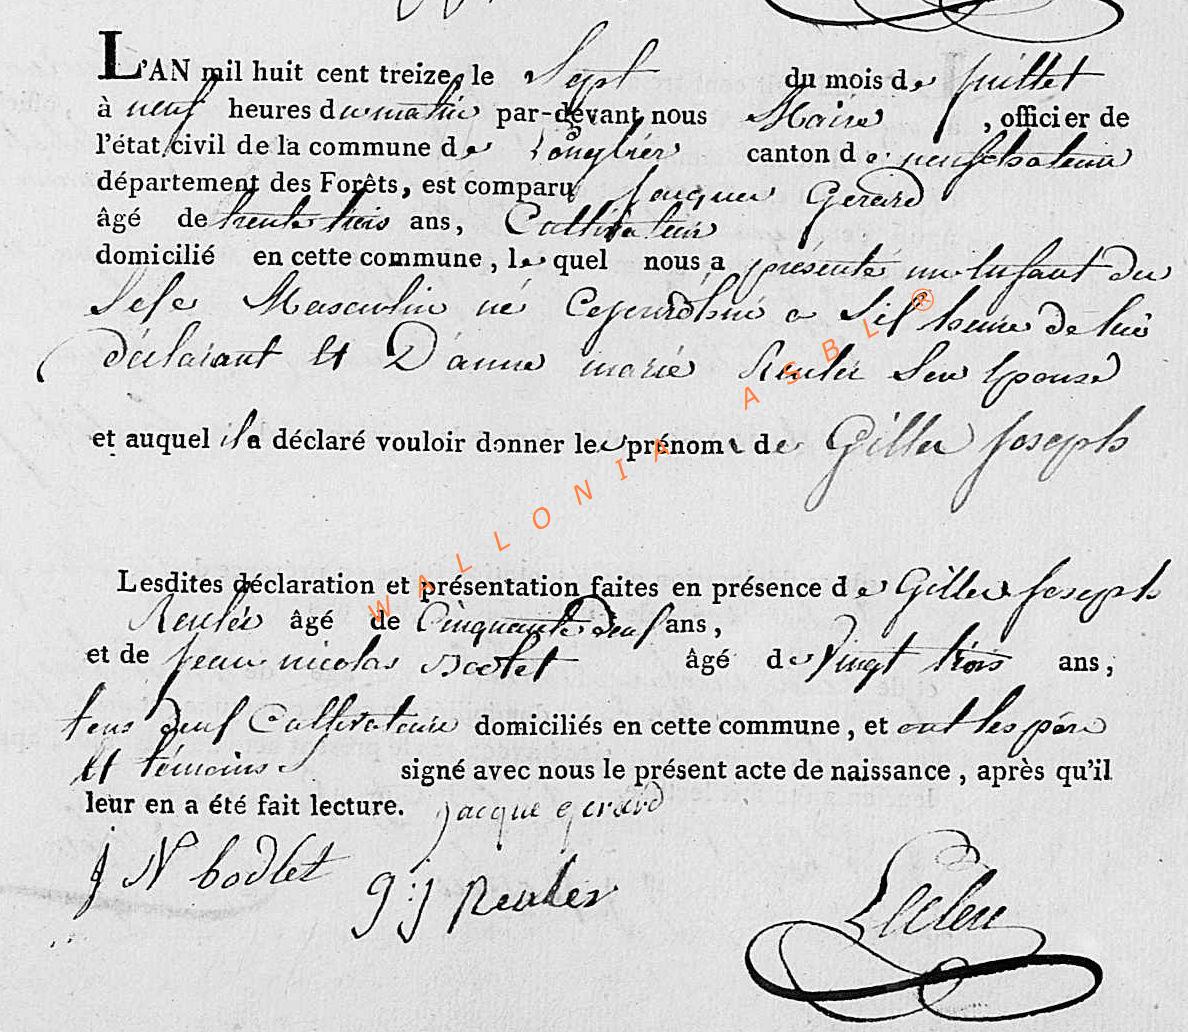 L'AN mil huit cent treize, le Sept du mois de Juillet
à neuf heures du matin par-devant nous Maire , officier de
l'état civil de la commune de Longlier canton de neufchateau
département des Forêts, est comparu Jacques Gerard
âgé de trente trois ans, Cultivateur
domicilié en cette commune, lequel nous a présenté un Enfant du
Sexe Masculin né Cejourdhui a Six heure de lui
déclarant Et D'anne marie Reuler Son Epouse
et auquel il a déclaré vouloir donner les prénoms de Gilles Joseph
Lesdites déclaration et présentation faites en présence de Gilles Joseph
Reuler âgé de Cinquante deux ans,
et de Jean nicolas Bodlet âgé de Vingt trois ans,
tous deux Cultivateurs domiciliés en cette commune, et ont les père
Et témoins signé avec nous le présent acte de naissance, après qu'il
leur en a été fait lecture. jacque gerard
J N bodlet G:J Reuler
WALLONIA ASBL ®